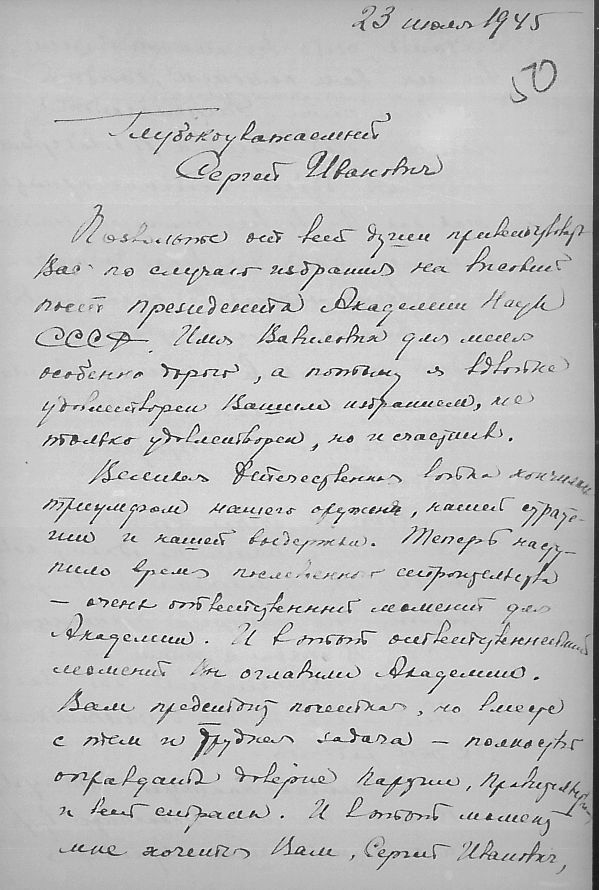 23 июля 1945
50
Глубокоуважаемый
Сергей Иванович
Позвольте от всей души приветствовать
Вас по случаю избрания на высокий
пост президента Академии Наук
СССР. Имя Вавилова для меня
особенно дорого, а потому я вдвойне
удовлетворен Вашим избранием, не
только удовлетворен, но и счастлив.
Великая Отечественная война кончилась
триумфом нашего оружия, нашей страте-
гии и нашей выдержки. Теперь насту-
пило время послевоенного строительства
— очень ответственный момент для
Академии. И в этот ответственнейший
момент Вы оглавили Академию.
Вам предстоит почетная, но вместе
с тем и трудная задача — полностью
оправдать доверие партии, правительства
и всей страны. И в этот момент
мне хочется Вам, Сергей Иванович,